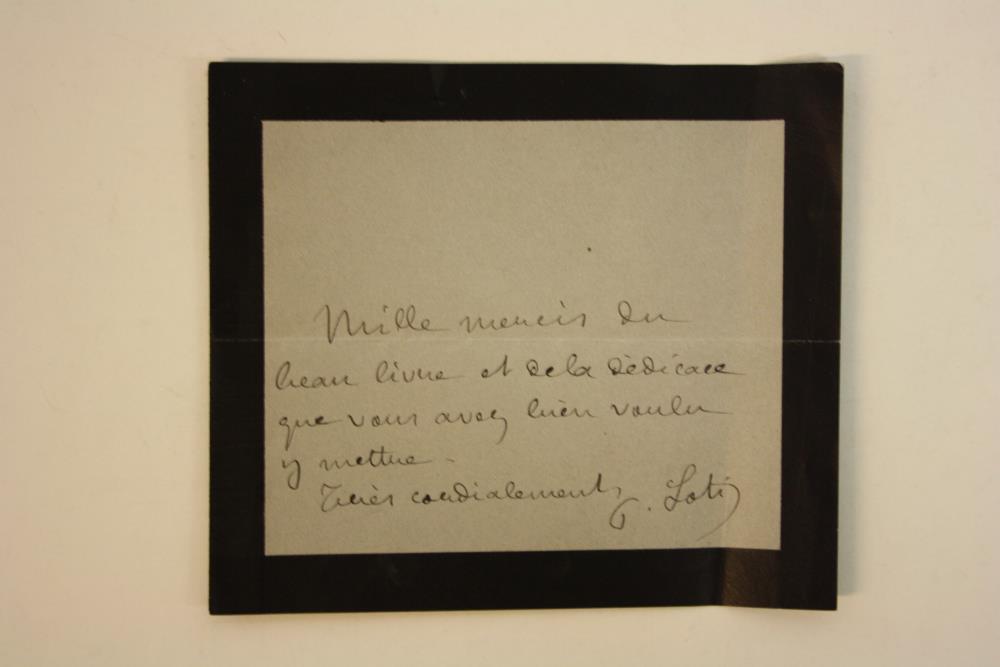 Mille mercis du
beau livre et de la dédicace
que vous avez bien voulu
y mettre -
Très cordialement P. Loti